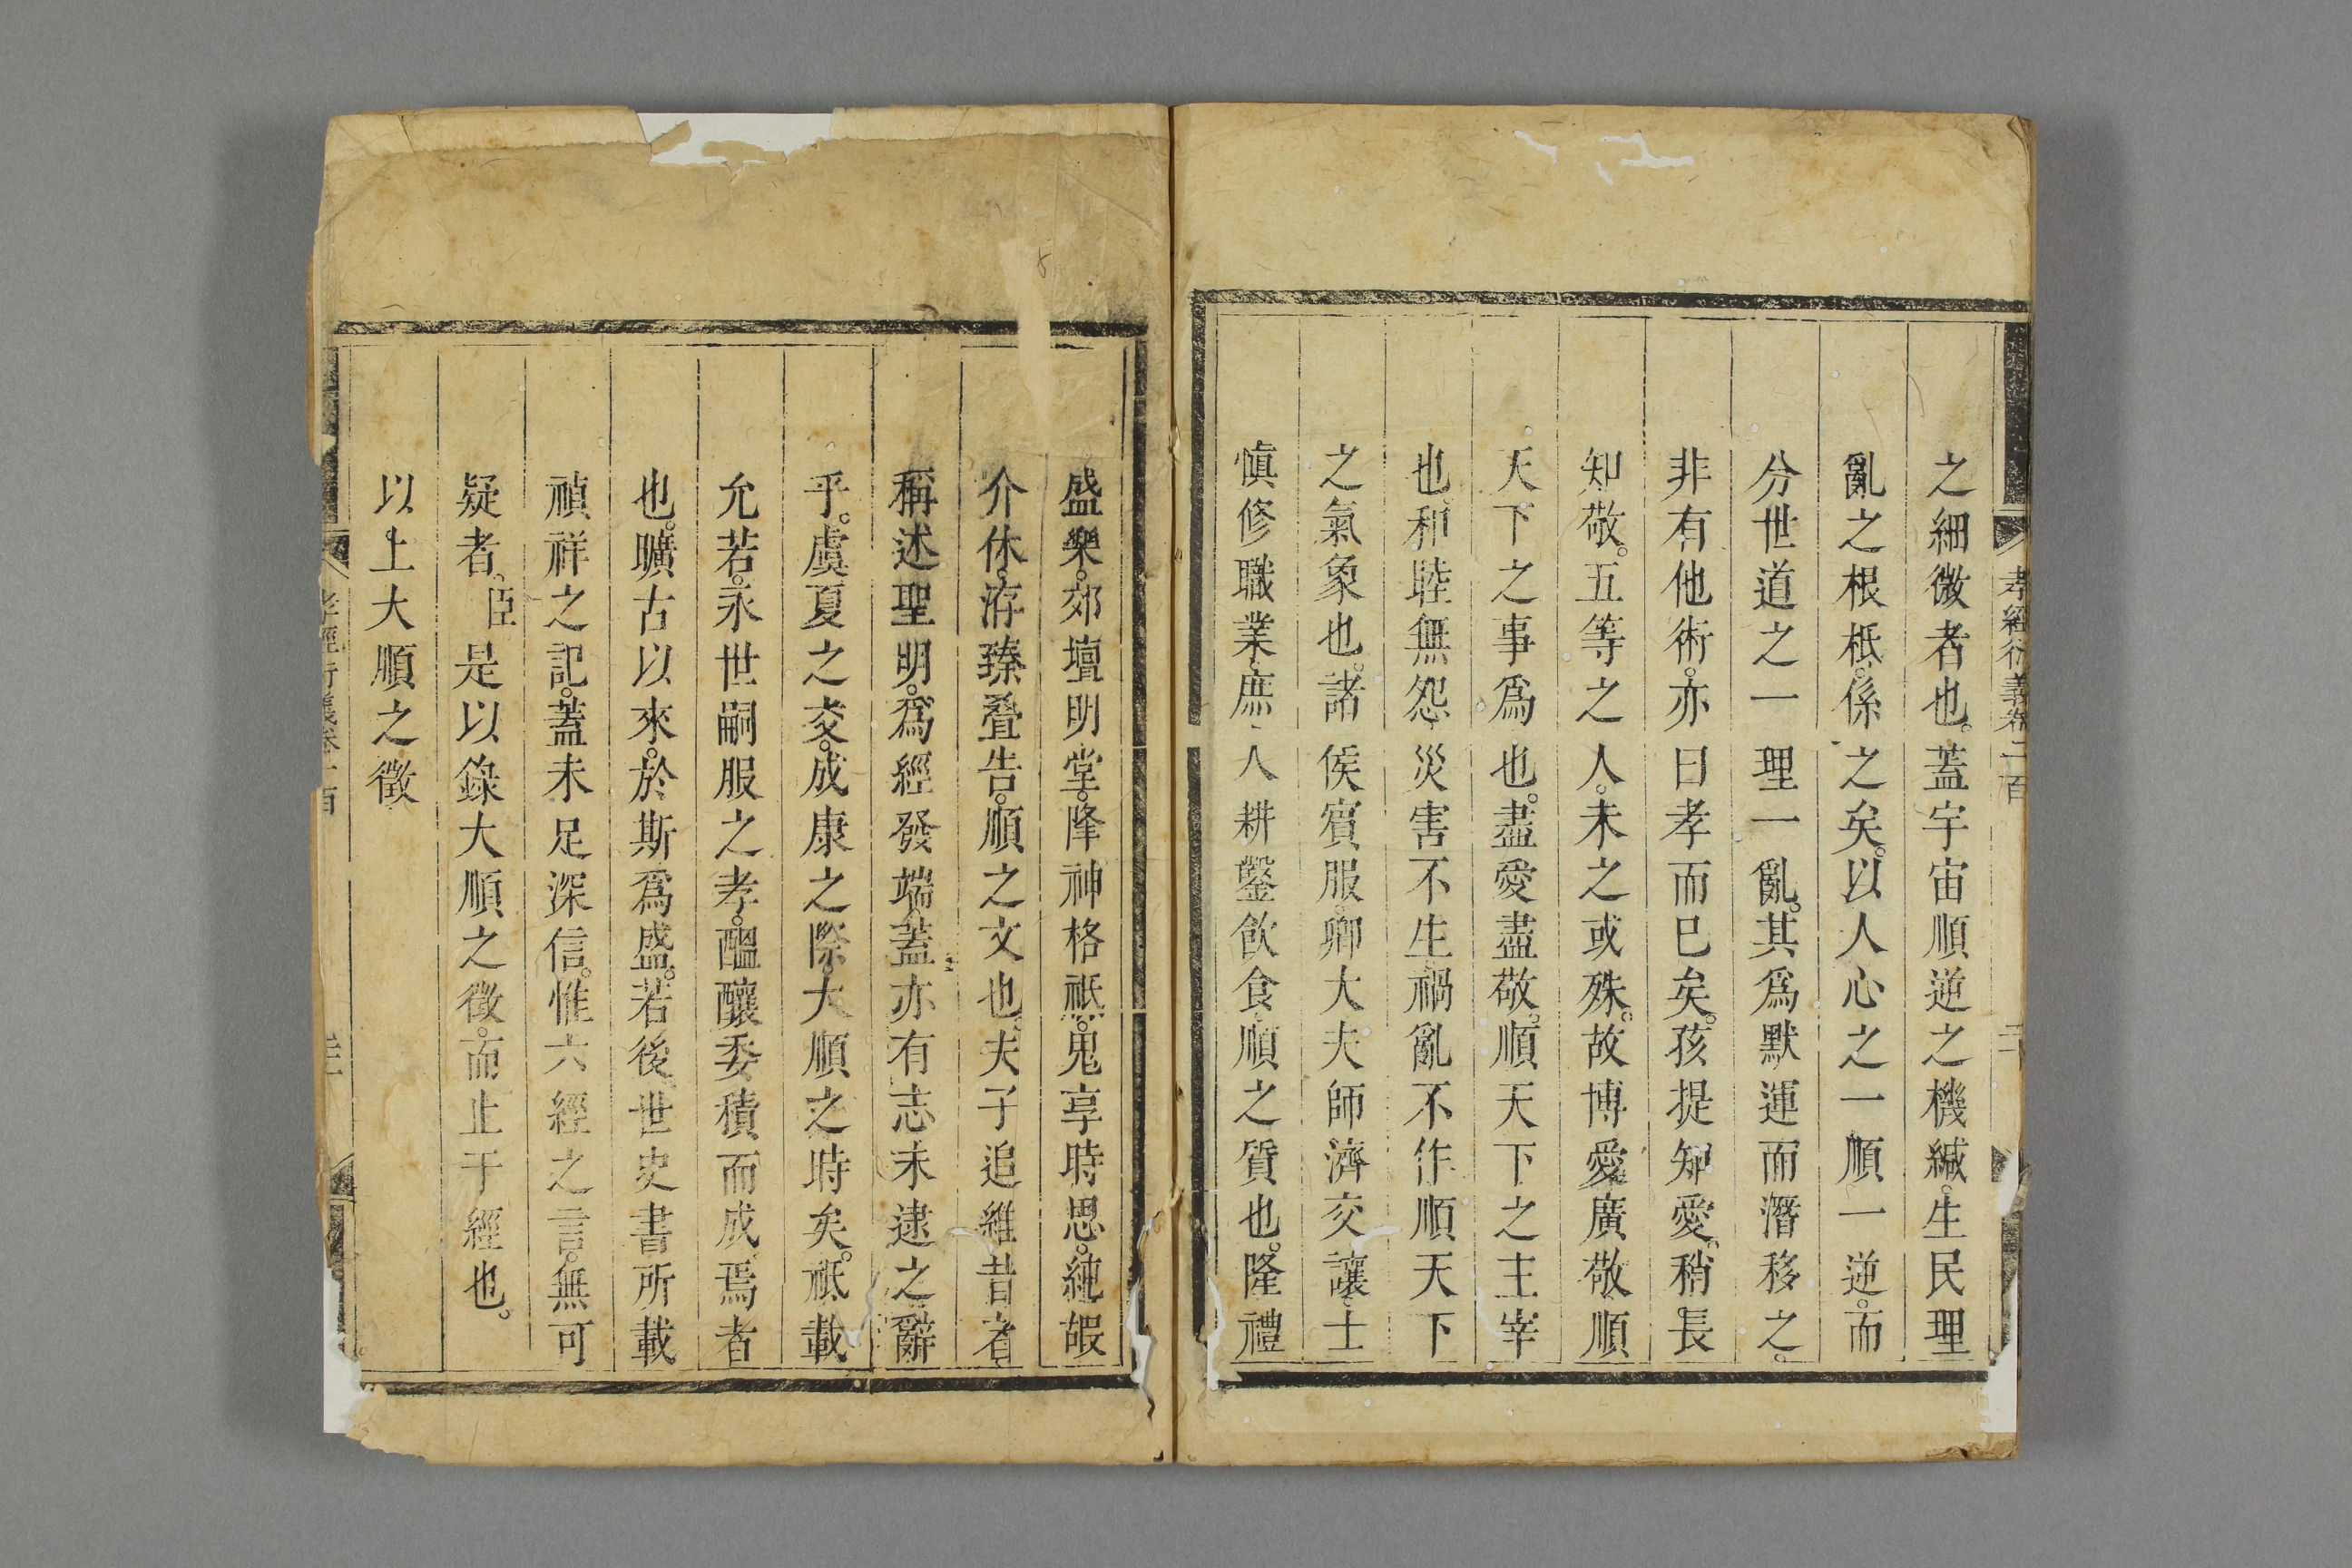 孝經衍義卷一百
之細微者也。蓋宇宙順逆之機緘。生民理
亂之根柢。係之矣。以人心之一順一逆。而
分世道之一理一亂。其爲默運而潛移之。
非有他術。亦曰孝而已矣。孩提知愛。稍長
知敬。五等之人。未之或殊。故博愛廣敬順
天下之事爲也。盡愛盡敬。順天下之主宰
也。和睦無怨。災害不生。禍亂不作順天下
之氣象也。諸侯賓服。卿大夫師濟交讓。士
愼修職業。庶人耕鑿飲食。順之質也。隆禮
盛樂。郊壇明堂。隆神格祇。鬼享時思。純嘏
介休。洊臻疊告。順之文也。夫子追維昔者
稱述聖明。爲經發端。蓋亦有志未逮之辭
乎。虞夏之交。成康之際。大順之時矣。祗載
允若。永世嗣服之孝。醞釀委積而成焉者
也。曠古以來。於斯爲盛。若後世史書所載
禎祥之記。蓋未足深信。惟六經之言。無可
疑者。臣是以錄大順之徵。而止于經也。
以上大順之徵